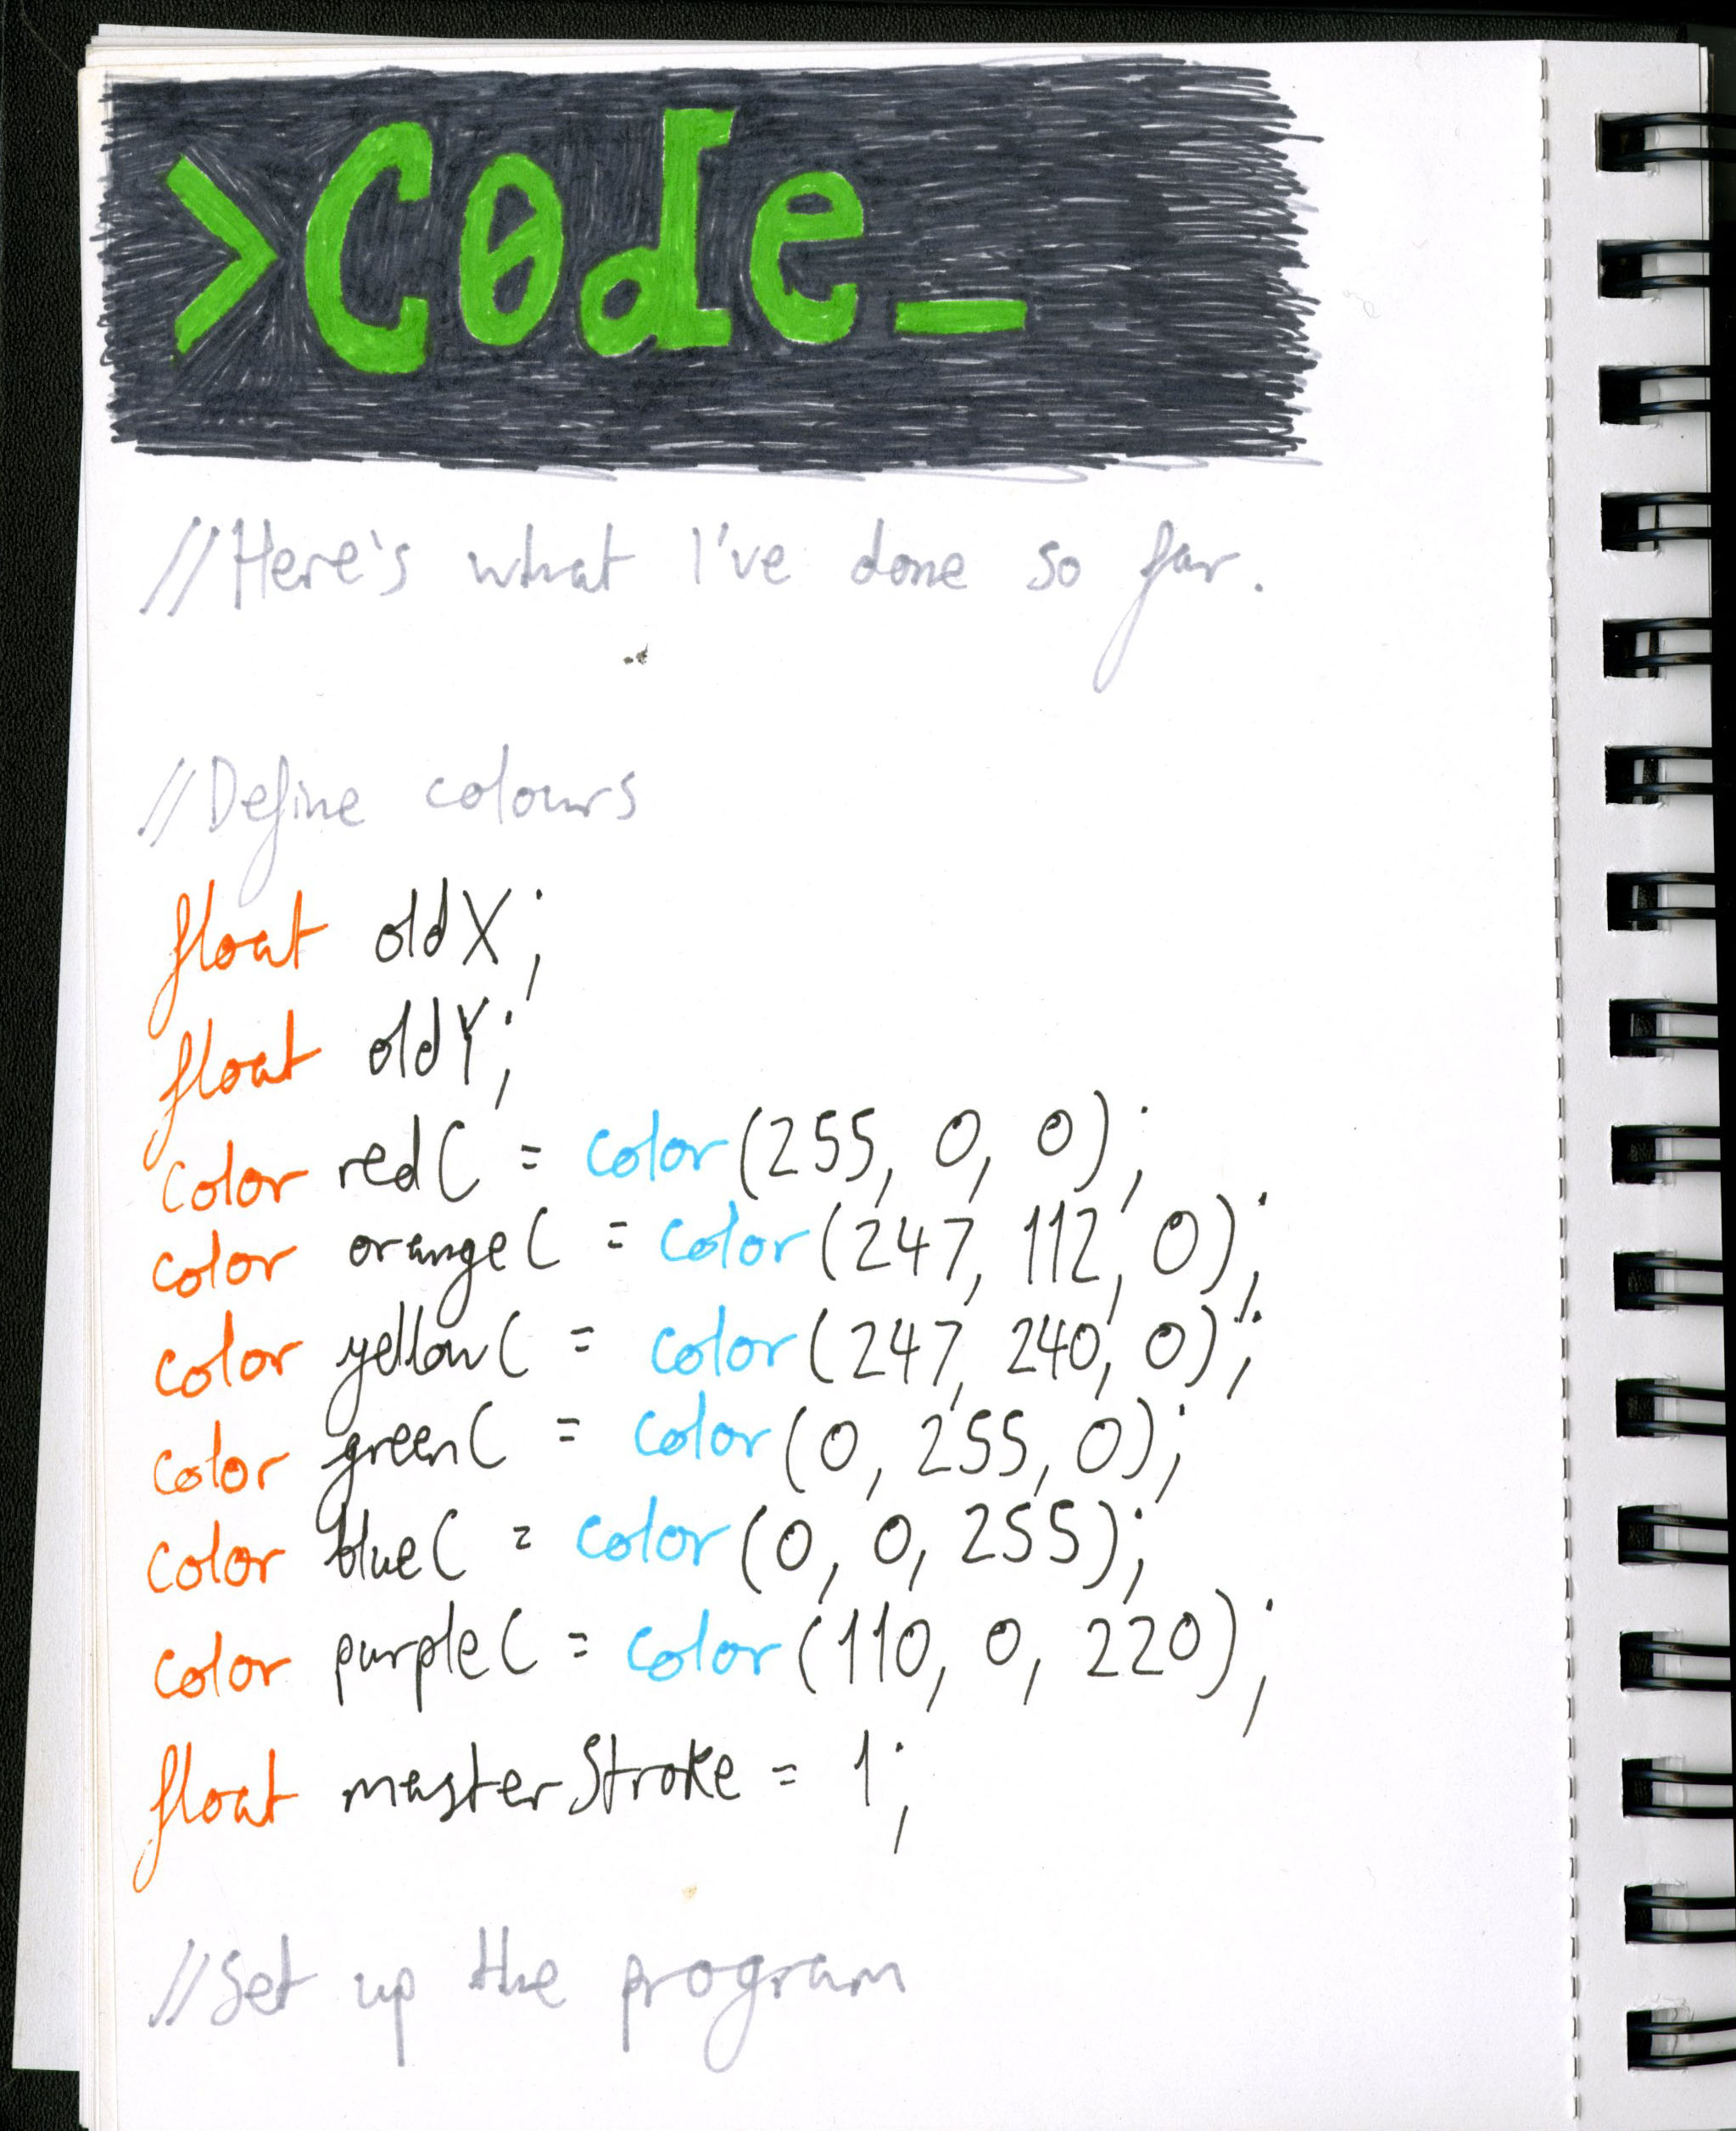 >Code_
//Here's what I've done so far.
//Define colours
float oldX;
float oldY;
color redC = color(255, 0, 0);
color orangeC = color(247, 112, 0);
color yellowC = color(247, 240, 0);
color greenC = color(0, 255, 0);
color blueC = color(0, 0, 255);
color purpleC = color(110, 0, 220);
float masterStroke = 1;
//Set up the program